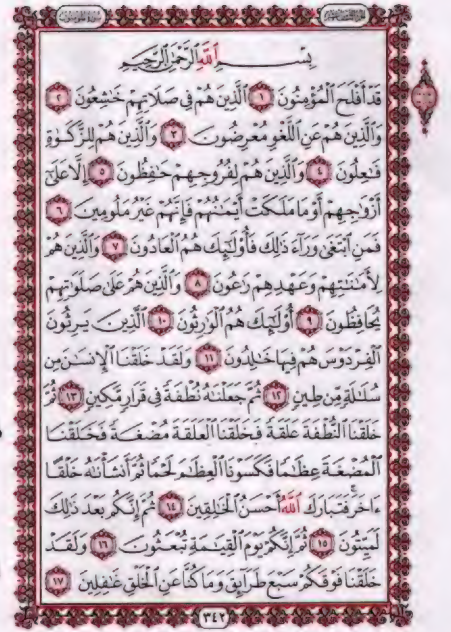 بِسْمِ ٱللَّهِ ٱلرَّحْمَٰنِ ٱلرَّحِيمِ
قَدْ أَفْلَحَ ٱلْمُؤْمِنُونَ ١ ٱلَّذِينَ هُمْ فِى صَلَاتِهِمْ خَٰشِعُونَ ٢
وَٱلَّذِينَ هُمْ عَنِ ٱللَّغْوِ مُعْرِضُونَ ٣ وَٱلَّذِينَ هُمْ لِلزَّكَوٰةِ
فَٰعِلُونَ ٤ وَٱلَّذِينَ هُمْ لِفُرُوجِهِمْ حَٰفِظُونَ ٥ إِلَّا عَلَىٰٓ
أَزْوَٰجِهِمْ أَوْ مَا مَلَكَتْ أَيْمَٰنُهُمْ فَإِنَّهُمْ غَيْرُ مَلُومِينَ ٦
فَمَنِ ٱبْتَغَىٰ وَرَآءَ ذَٰلِكَ فَأُو۟لَٰٓئِكَ هُمُ ٱلْعَادُونَ ٧ وَٱلَّذِينَ هُمْ
لِأَمَٰنَٰتِهِمْ وَعَهْدِهِمْ رَٰعُونَ ٨ وَٱلَّذِينَ هُمْ عَلَىٰ صَلَوَٰتِهِمْ
يُحَافِظُونَ ٩ أُو۟لَٰٓئِكَ هُمُ ٱلْوَٰرِثُونَ ١٠ ٱلَّذِينَ يَرِثُونَ
ٱلْفِرْدَوْسَ هُمْ فِيهَا خَٰلِدُونَ ١١ وَلَقَدْ خَلَقْنَا ٱلْإِنسَٰنَ مِن
سُلَٰلَةٍ مِّن طِينٍ ١٢ ثُمَّ جَعَلْنَٰهُ نُطْفَةً فِى قَرَارٍ مَّكِينٍ ١٣ ثُمَّ
خَلَقْنَا ٱلنُّطْفَةَ عَلَقَةً فَخَلَقْنَا ٱلْعَلَقَةَ مُضْغَةً فَخَلَقْنَا
ٱلْمُضْغَةَ عِظَٰمًا فَكَسَوْنَا ٱلْعِظَٰمَ لَحْمًا ثُمَّ أَنشَأْنَٰهُ خَلْقًا
ءَاخَرَ فَتَبَارَكَ ٱللَّهُ أَحْسَنُ ٱلْخَٰلِقِينَ ١٤ ثُمَّ إِنَّكُم بَعْدَ ذَٰلِكَ
لَمَيِّتُونَ ١٥ ثُمَّ إِنَّكُمْ يَوْمَ ٱلْقِيَٰمَةِ تُبْعَثُونَ ١٦ وَلَقَدْ
خَلَقْنَا فَوْقَكُمْ سَبْعَ طَرَآئِقَ وَمَا كُنَّا عَنِ ٱلْخَلْقِ غَٰفِلِينَ ١٧
٣٤٢